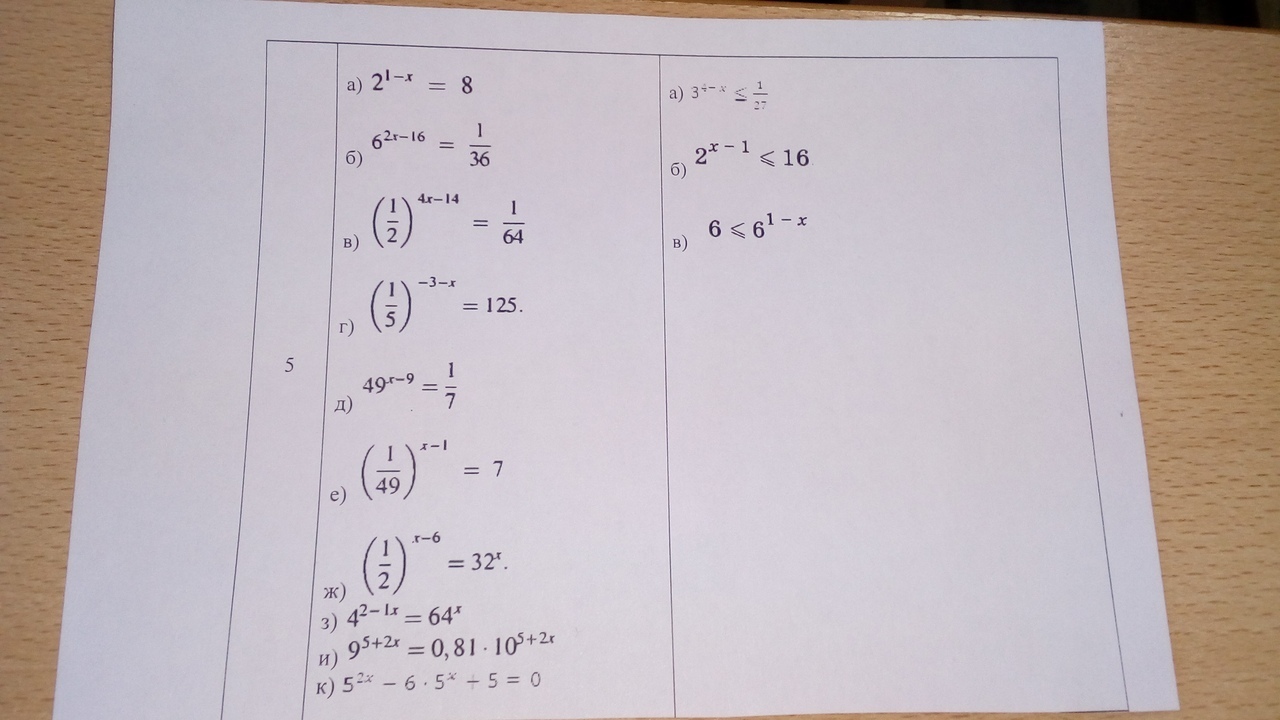 5
а) 2^{1−x} = 8
б) 6^{2x−16} = \frac{1}{36}
в) (\frac{1}{2})^{4x−14} = \frac{1}{64}
г) (\frac{1}{5})^{−3−x} = 125.
д) 49^{x−9} = \frac{1}{7}
е) (\frac{1}{49})^{x−1} = 7
ж) (\frac{1}{2})^{x−6} = 32^{x}.
з) 4^{2−1x} = 64^{x}
и) 9^{5+2x} = 0,81 · 10^{5+2x}
к) 5^{2x} − 6 · 5^{x} + 5 = 0
а) 3^{4−x} ≤ \frac{1}{27}
б) 2^{x−1} ⩽ 16
в) 6 ⩽ 6^{1−x}